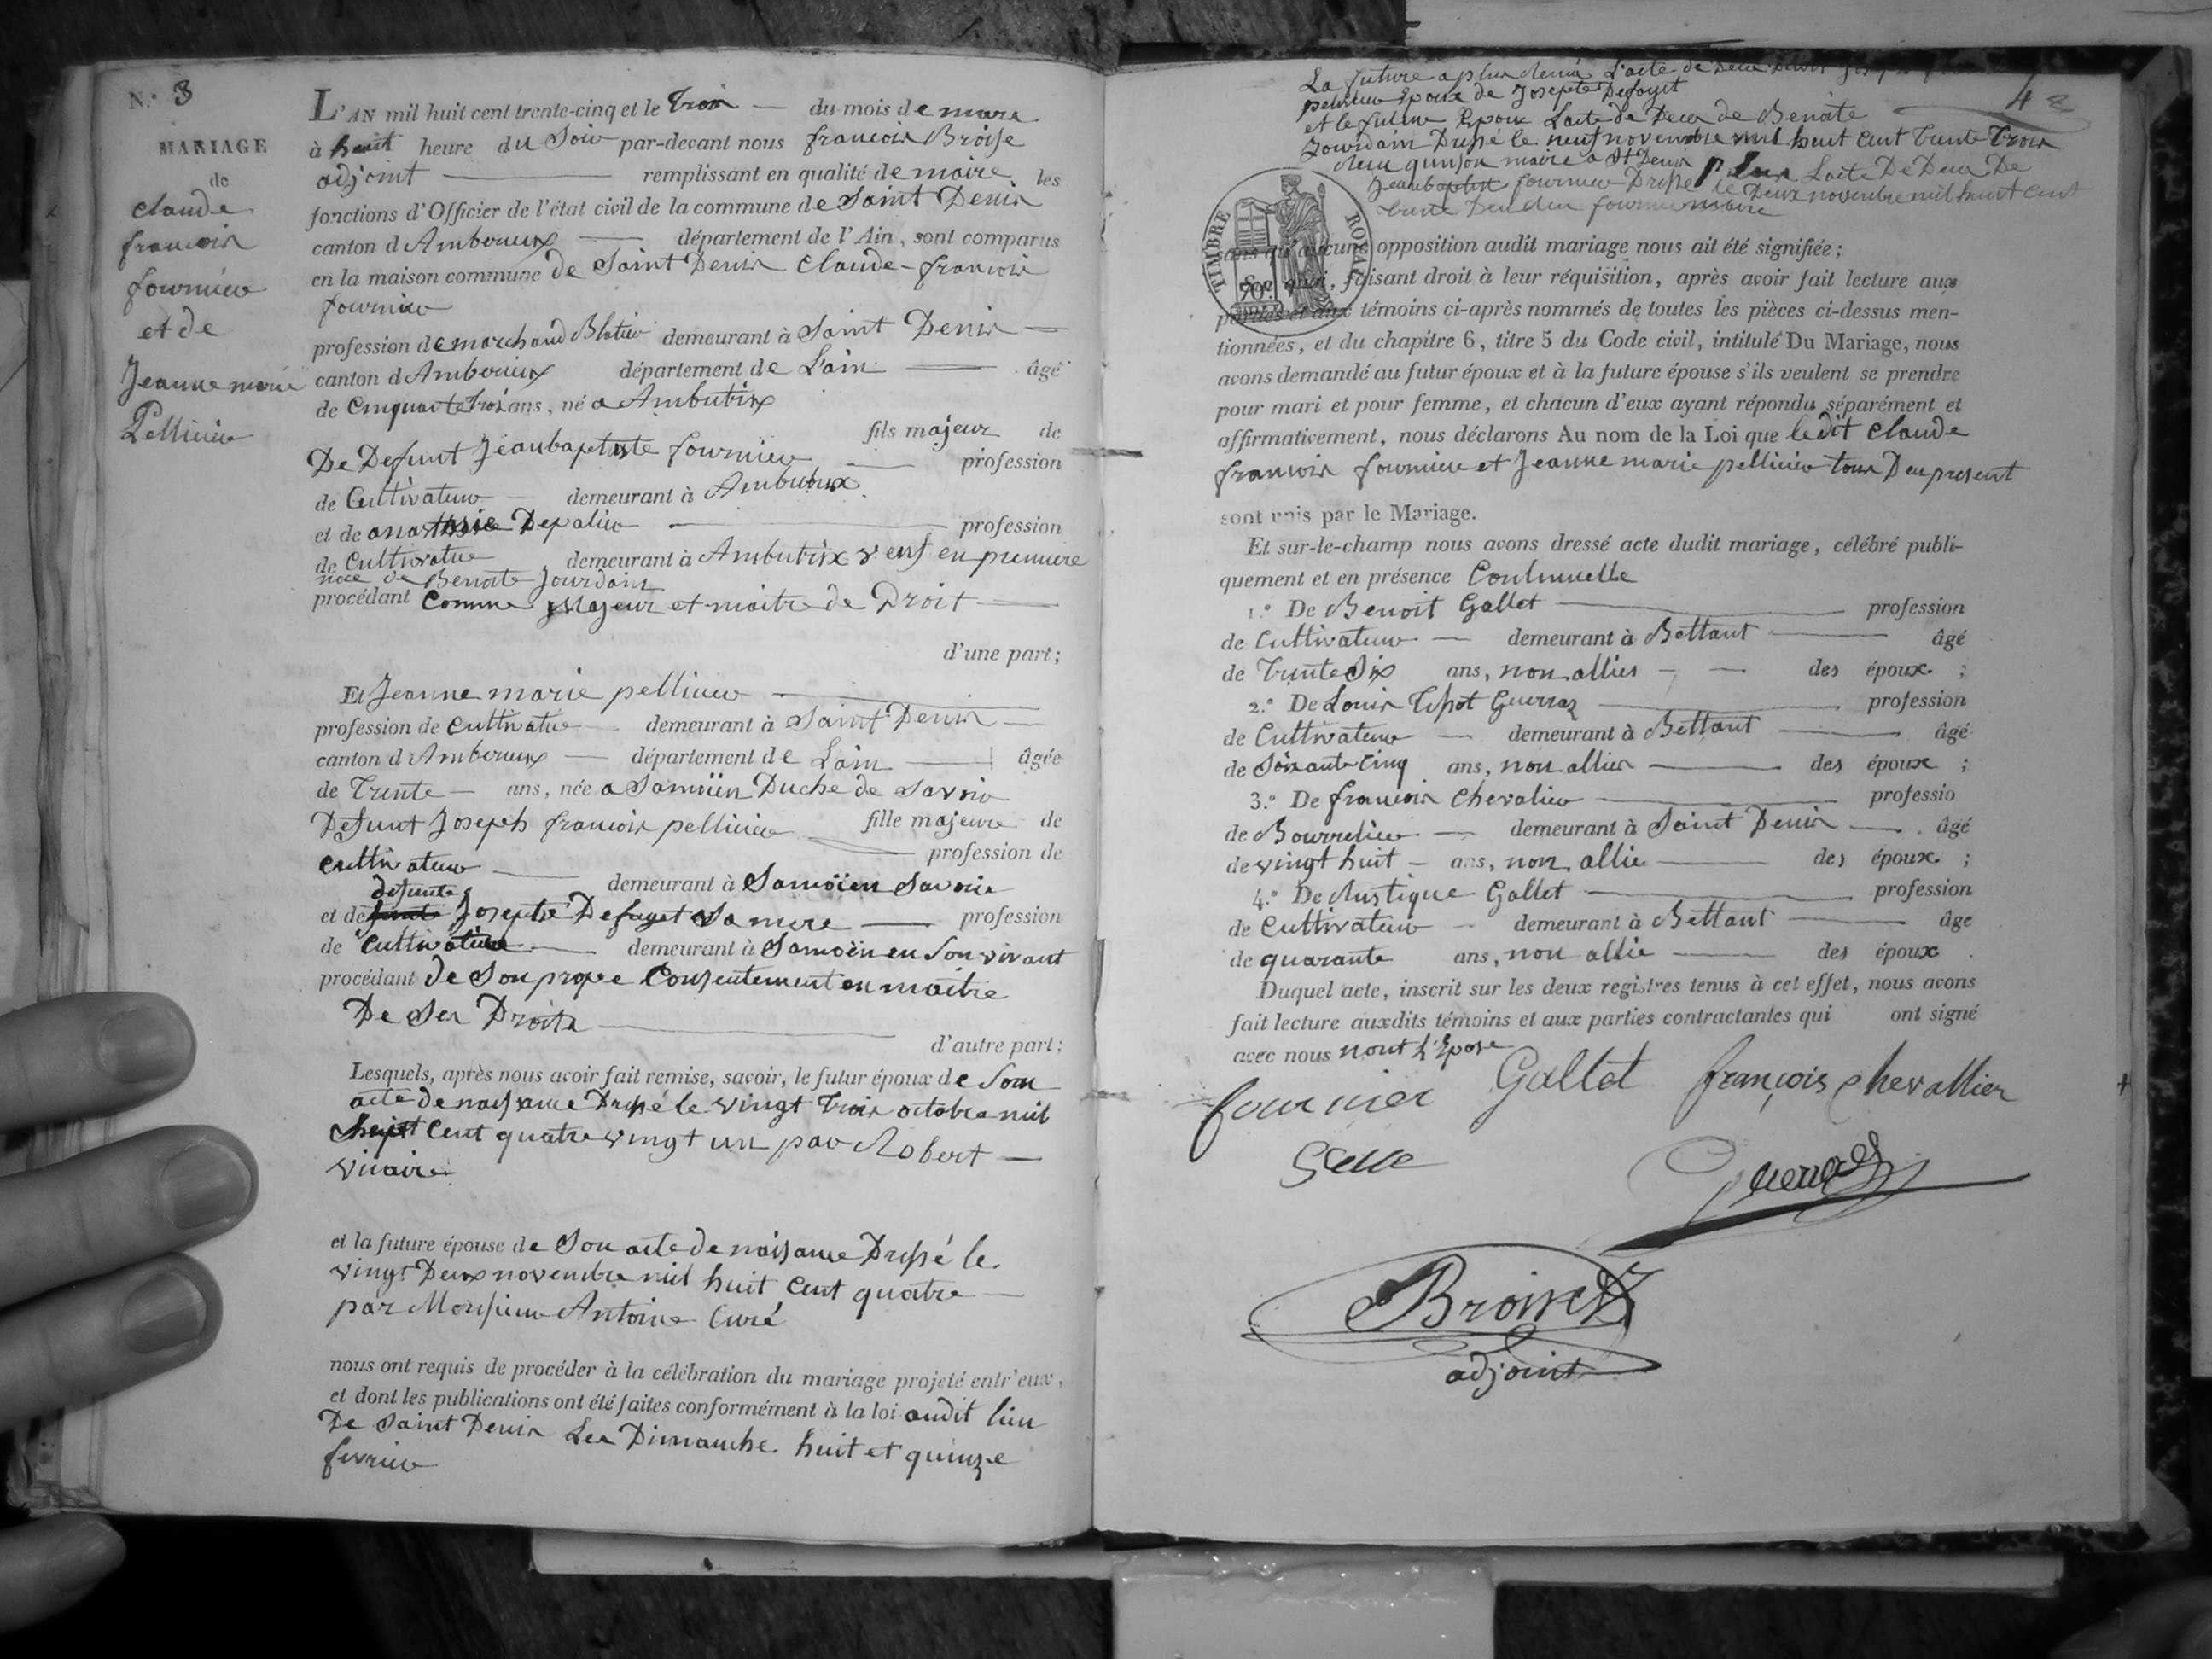 N.° 3
MARIAGE
de
claude
francois
fournier
et de
Jeanne marie
Pellicier
L'AN mil huit cent trente-cinq et le trois du mois de mars
à huit heure du Soir par-devant nous francois Broise
adjoint remplissant en qualité de maire les
fonctions d'Officier de l'état civil de la commune de Saint Denis
canton d'Amberieux département de l'Ain, sont comparus
en la maison commune de Saint Denis claude-francois
fournier
profession de marchand Blatier demeurant à Saint Denis
canton d'Amberieux département de L'ain âgé
de Cinquante trois ans, né a Ambutrix
fils majeur de
De Defunt Jeanbaptiste fournier profession
de Cultivateur demeurant à Ambutrix
et de Depalier profession
de Cultivatr demeurant à Ambutrix veuf en premiere
noce de Benoite Jourdain
procédant Comme Majeur et maitre de Droit
d'une part;
Et Jeanne marie pellicier
profession de Cultivatr demeurant à Saint Denis
canton d'Amberieux département de Lain âgée
de Trente ans, née a Samoïen Duche de Savoie
Defunt Joseph francois pellicier fille majeure de
profession de
Cultivateur demeurant à Samoïen Savoie
defunte
et de Josephte Defayet Sa mere profession
de Cultivatrice demeurant à Samoïen en Son vivant
procédant de Son propre Consentement en maitre
De Ses Droits
d'autre part;
Lesquels, après nous avoir fait remise, savoir, le futur époux de Son
acte de naissance Dressé le vingt trois octobre mil
Cent quatre vingt un par Robert
vicaire
et la future épouse de Son acte de naissance Dressé le
vingt Deux novembre mil huit Cent quatre
par Monsieur Antoine Curé
nous ont requis de procéder à la célébration du mariage projeté entr'eux,
et dont les publications ont été faites conformément à la loi audit lieu
De Saint Denis Les Dimanche huit et quinze
fevrier
La future a plus remis L'acte de Deces
pellicier Epoux de Josephte Defayet
4
et le futur Epoux L'acte de Deces de Benoite
Jourdain Dressé le neuf novembre mil huit Cent Trente Trois
maire a St Denis plus L'acte De Deces De
Jeanbaptist fournier Dressé le Deux novembre mil huit Cent
fournier maire
TIMBRE ROYAL
70c
sans qu'aucune opposition audit mariage nous ait été signifiée;
Sur quoi, faisant droit à leur réquisition, après avoir fait lecture aux
parties et aux témoins ci-après nommés de toutes les pièces ci-dessus men-
tionnées, et du chapitre 6, titre 5 du Code civil, intitulé Du Mariage, nous
avons demandé au futur époux et à la future épouse s'ils veulent se prendre
pour mari et pour femme, et chacun d'eux ayant répondu séparément et
affirmativement, nous déclarons Au nom de la Loi que ledit Claude
francois fournier et Jeanne marie pellicier tous Deu present
sont unis par le Mariage.
Et sur-le-champ nous avons dressé acte dudit mariage, célébré publi-
quement et en présence Continuelle
1.° De Benoit Gallet profession
de Cultivateur demeurant à Bettant âgé
de Trente Six ans, non allies des époux ;
2.° De Louis Tissot Guerraz profession
de Cultivateur demeurant à Bettant âgé
de Soixante Cinq ans, non allier des époux ;
3.° De francois Chevalier professio
de Bourrelier demeurant à Saint Denis âgé
de vingt huit ans, non allie des époux ;
4.° De Rustique Gallet profession
de Cultivateur demeurant à Bettant âge
de quarante ans, non allie des époux
Duquel acte, inscrit sur les deux registres tenus à cet effet, nous avons
fait lecture auxdits témoins et aux parties contractantes qui ont signé
avec nous nont L'Epose
fournier Gallet françois chevallier
Broise
adjoint